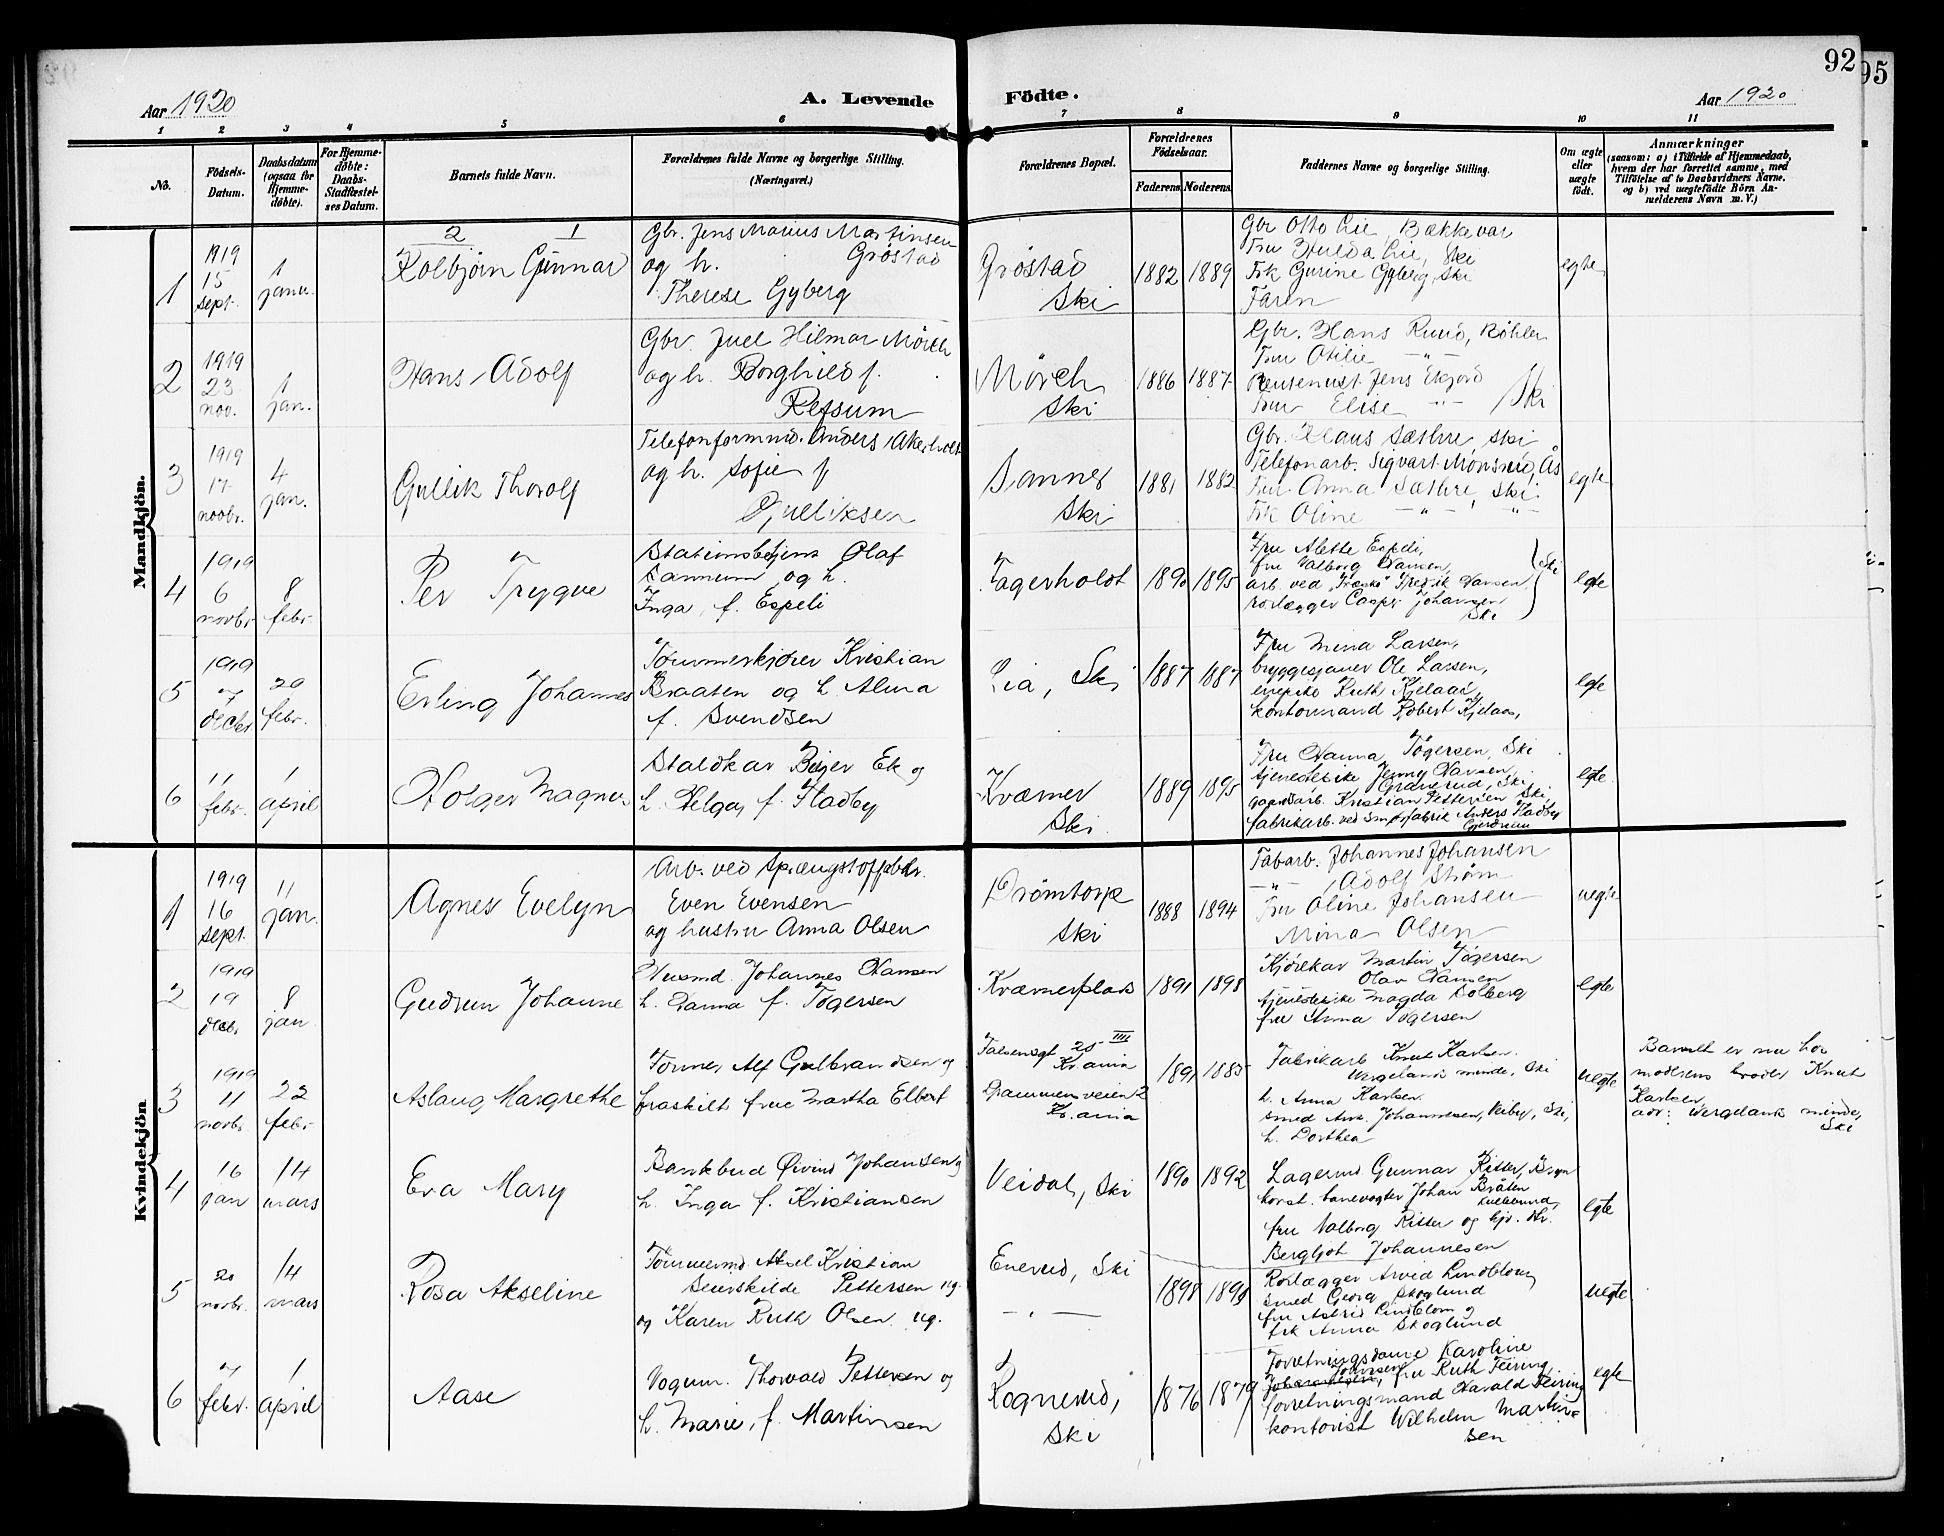 92
95
Aar 1920
A. Levende Födte.
Aar 1920
1 2 3 4 5 6 7 8 9 10 11
No.
Födsels-Datum.
Daabsdatum (ogsaa for Hjemme-döbte).
For Hjemme-döbte: Daabs-Stadfæstel-ses Datum.
Barnets fulde Navn.
Forældrenes fulde Navne og borgerlige Stilling. (Næringsvei.)
Forældrenes Bopæl.
Forældrenes Födselsaar.
Faderens. Moderens.
Faddernes Navne og borgerlige Stilling.
Om ægte eller uægte födt.
Anmærkninger
(saasom: a) i Tilfælde af Hjemmedaab, hvem der har forrettet samme, med Tilföielse af to Daabsvidners Navne, og b) ved uægtefödte Börn An-melderens Navn m. V.)
Mandkjön.
1
1919
15
sept.
1
janu.
2 1
Kolbjørn Gunnar
Gbr. Jens Marius Martinsen
og h. Grøstad
Therese Gyberg
Grøstad
Ski
1882 1889
Gbr Otto Lie, Bækkevar
Fru Hulda Lie, Ski
Frk Gurine Gyberg, Ski
Faren
egte
2
1919
23
nov.
1
jan.
Hans Adolf
Gbr. Juel Hilmar Mörch
og h. Borghild f.
Refsum
Mörch
Ski
1886 1887
Gbr. Hans Ruud,
Fru Otilie — " —
Jens Ekjord
Fru Elise — " — Ski
3
1919
17
novbr.
4
jan.
Gullik Thorolf
Telefonformnd. Anders Akerholt
og h. Sofie f
Gulliksen
Sanner
Ski
1881 1882
Gbr. Klaus Sæthre, Ski
Telefonarb. Sigvart Mónsrud, Ås
Fru Anna Sæthre, Ski
Frk Oline — " — — " —
egte
4
1919
6
novbr
8
febr.
Per Trygve
Stationsbetjent Olaf
Sannum og h.
Inga, f. Espeli
Fagerholdt
1890 1895
Fru Alette Espeli,
fru Valborg Hansen,
arb ved "Træsko" Fredrik Hansen
rørlægger Caspr. Johansen
Ski
Ski
egte
5
1919
7
decbr
29
febr.
Erling Johannes
Tömmerkjører Kristian
Braaten og h. Alma
f. Svendsen
Lia, Ski
1887 1887
Fru Mina Larsen,
bryggesjauer Ole Larsen,
enepike Ruth Kjelaas,
kontormand Robert Kjelaas,
egte
6
11
febr.
1
april
Holger Magnus
Staldkar Birger Ek og
h. Helga, f. Fladby
Kværner
Ski
1889 1895
Fru Hanna Tögersen, Ski
tjenestepike Jenny Hansen,
Graverud, Ski
gaardsarb. Kristian Pettersen Ski,
fabrikarb. ved Anders Fladby
Gjerdrum
egte
Kvindekjön
1
1919
16
sept.
11
jan.
Agnes Evelyn
Arb. ved Sprængstoffabr.
Even Evensen
og hustru Anna Olsen
Drömtorp
Ski
1888 1894
Fabarb. Johannes Johansen
— " — Adolf Ström
Fru Oline Johansen
Mina Olsen
uegte
2
1919
19
decbr
8
jan
Gudrun Johanne
Husmd. Johannes Hansen
h. Hanna f. Tögersen
Kværnerplads
1891 1898
Kjörekar Martin Tögersen
Olav Hansen
tjenestepike Magda Solberg
fru Anna Tögersen
egte
3
1919
11
novbr.
22
febr.
Aslaug Margrethe
Former Alf Gulbrandsen og
fraskilt frue Martha Elbert
Falsensgt 25 III
Kr.ania
Drammensveien 2
Kr.ania
1891 1885
Fabrikarb Knut Karlsen.
Vergelands minde, Ski
h. Anna Karlsen
smed Ant. Johannesen, Veiby, Ski,
h. Dorthea
uegte
Barnet er nu hos
moderens broder Knut
Karlsen
adr: Vergelands minde,
Ski
4
16
jan
14
mars
Eva Mary
Bankbud Øivind Johansen og
h. Inga f. Kristiansen
Veidal, Ski
1890 1892
Lagermd Gunnar Ritter, Bryn
konst. banevogter Johan Bråten
fru Valborg Ritter og hjv. dtr.
Bergljot Johannesen
egte
5
20
novbr.
14
mars
Rosa Akseline
Tömmermd Aksel Kristian
Seierskilde Pettersen ug.
og Karen Ruth Olsen ug.
Enerud, Ski
— " —
1898 1899
Rörlægger Arvid Lindblom,
smed Georg Skoglund
fru Astrid Lindblom og
frk Anna Skoglund
uegte
6
7
febr.
1
april
Aase
Vognm. Thorvald Pettersen og
h. Marie, f. Martinsen
Rognerud,
Ski
1876 1879
Forretningsdame Karoline
Johnsen, fru Ruth Feiring,
forretningsmand Harald Feiring
kontorist Wilhelm Martin=
sen
egte